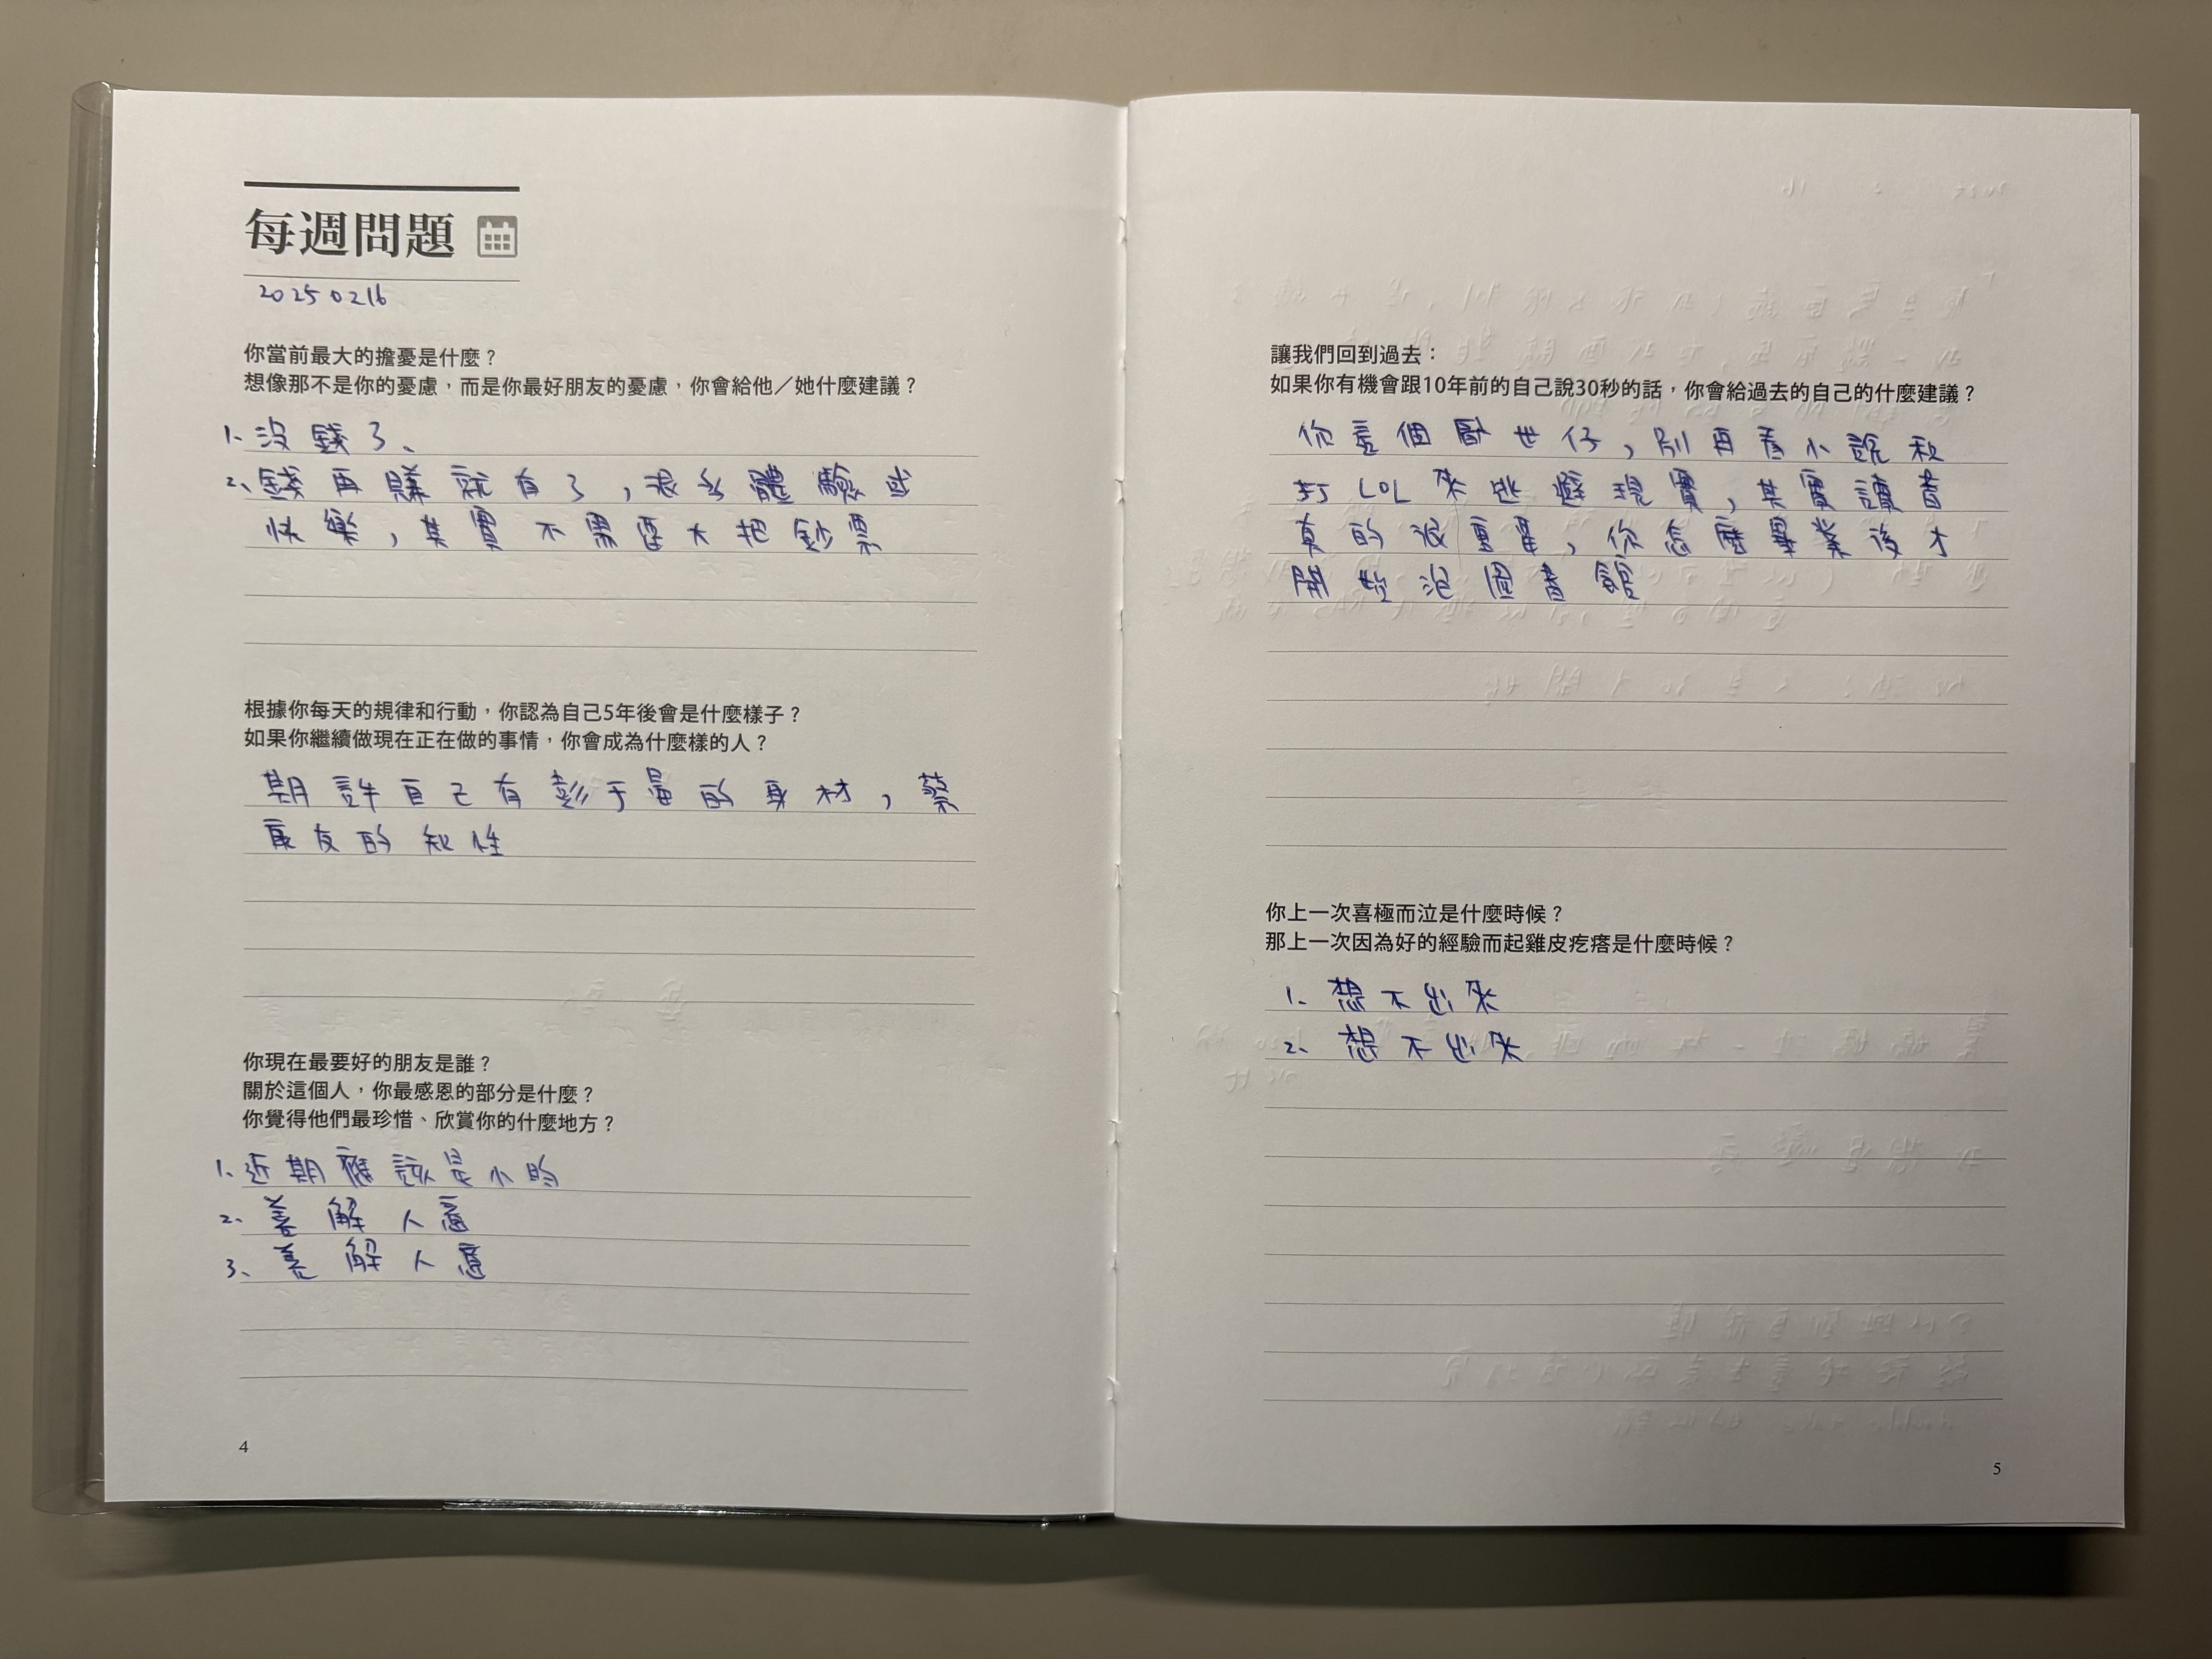 每週問題
20250216
你當前最大的擔憂是什麼？
想像那不是你的憂慮，而是你最好朋友的憂慮，你會給他／她什麼建議？
1、沒錢了、
2、錢再賺就有了，很多體驗或
快樂，其實不需要大把鈔票
根據你每天的規律和行動，你認為自己5年後會是什麼樣子？
如果你繼續做現在正在做的事情，你會成為什麼樣的人？
期許自己有彭于晏的身材，蔡
康友的知性
你現在最要好的朋友是誰？
關於這個人，你最感恩的部分是什麼？
你覺得他們最珍惜、欣賞你的什麼地方？
1、近期應該是小昀
2、善解人意
3、善解人意
4
讓我們回到過去：
如果你有機會跟10年前的自己說30秒的話，你會給過去的自己的什麼建議？
你這個厭世仔，別再看小說和
打LOL來逃避現實，其實讀書
真的很重要，你怎麼畢業後才
開始泡圖書館
你上一次喜極而泣是什麼時候？
那上一次因為好的經驗而起雞皮疙瘩是什麼時候？
1、想不出來
2、想不出來
5